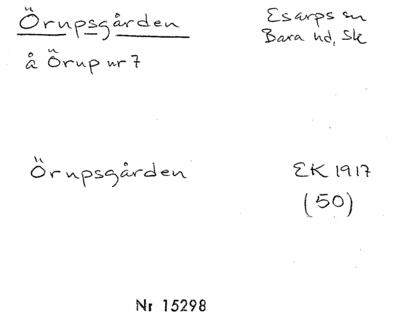 Örupsgården
Esarps sn
Bara hd, Sk
å Örup nr 7
Örupsgården
EK 1917
(50)
Nr 15298